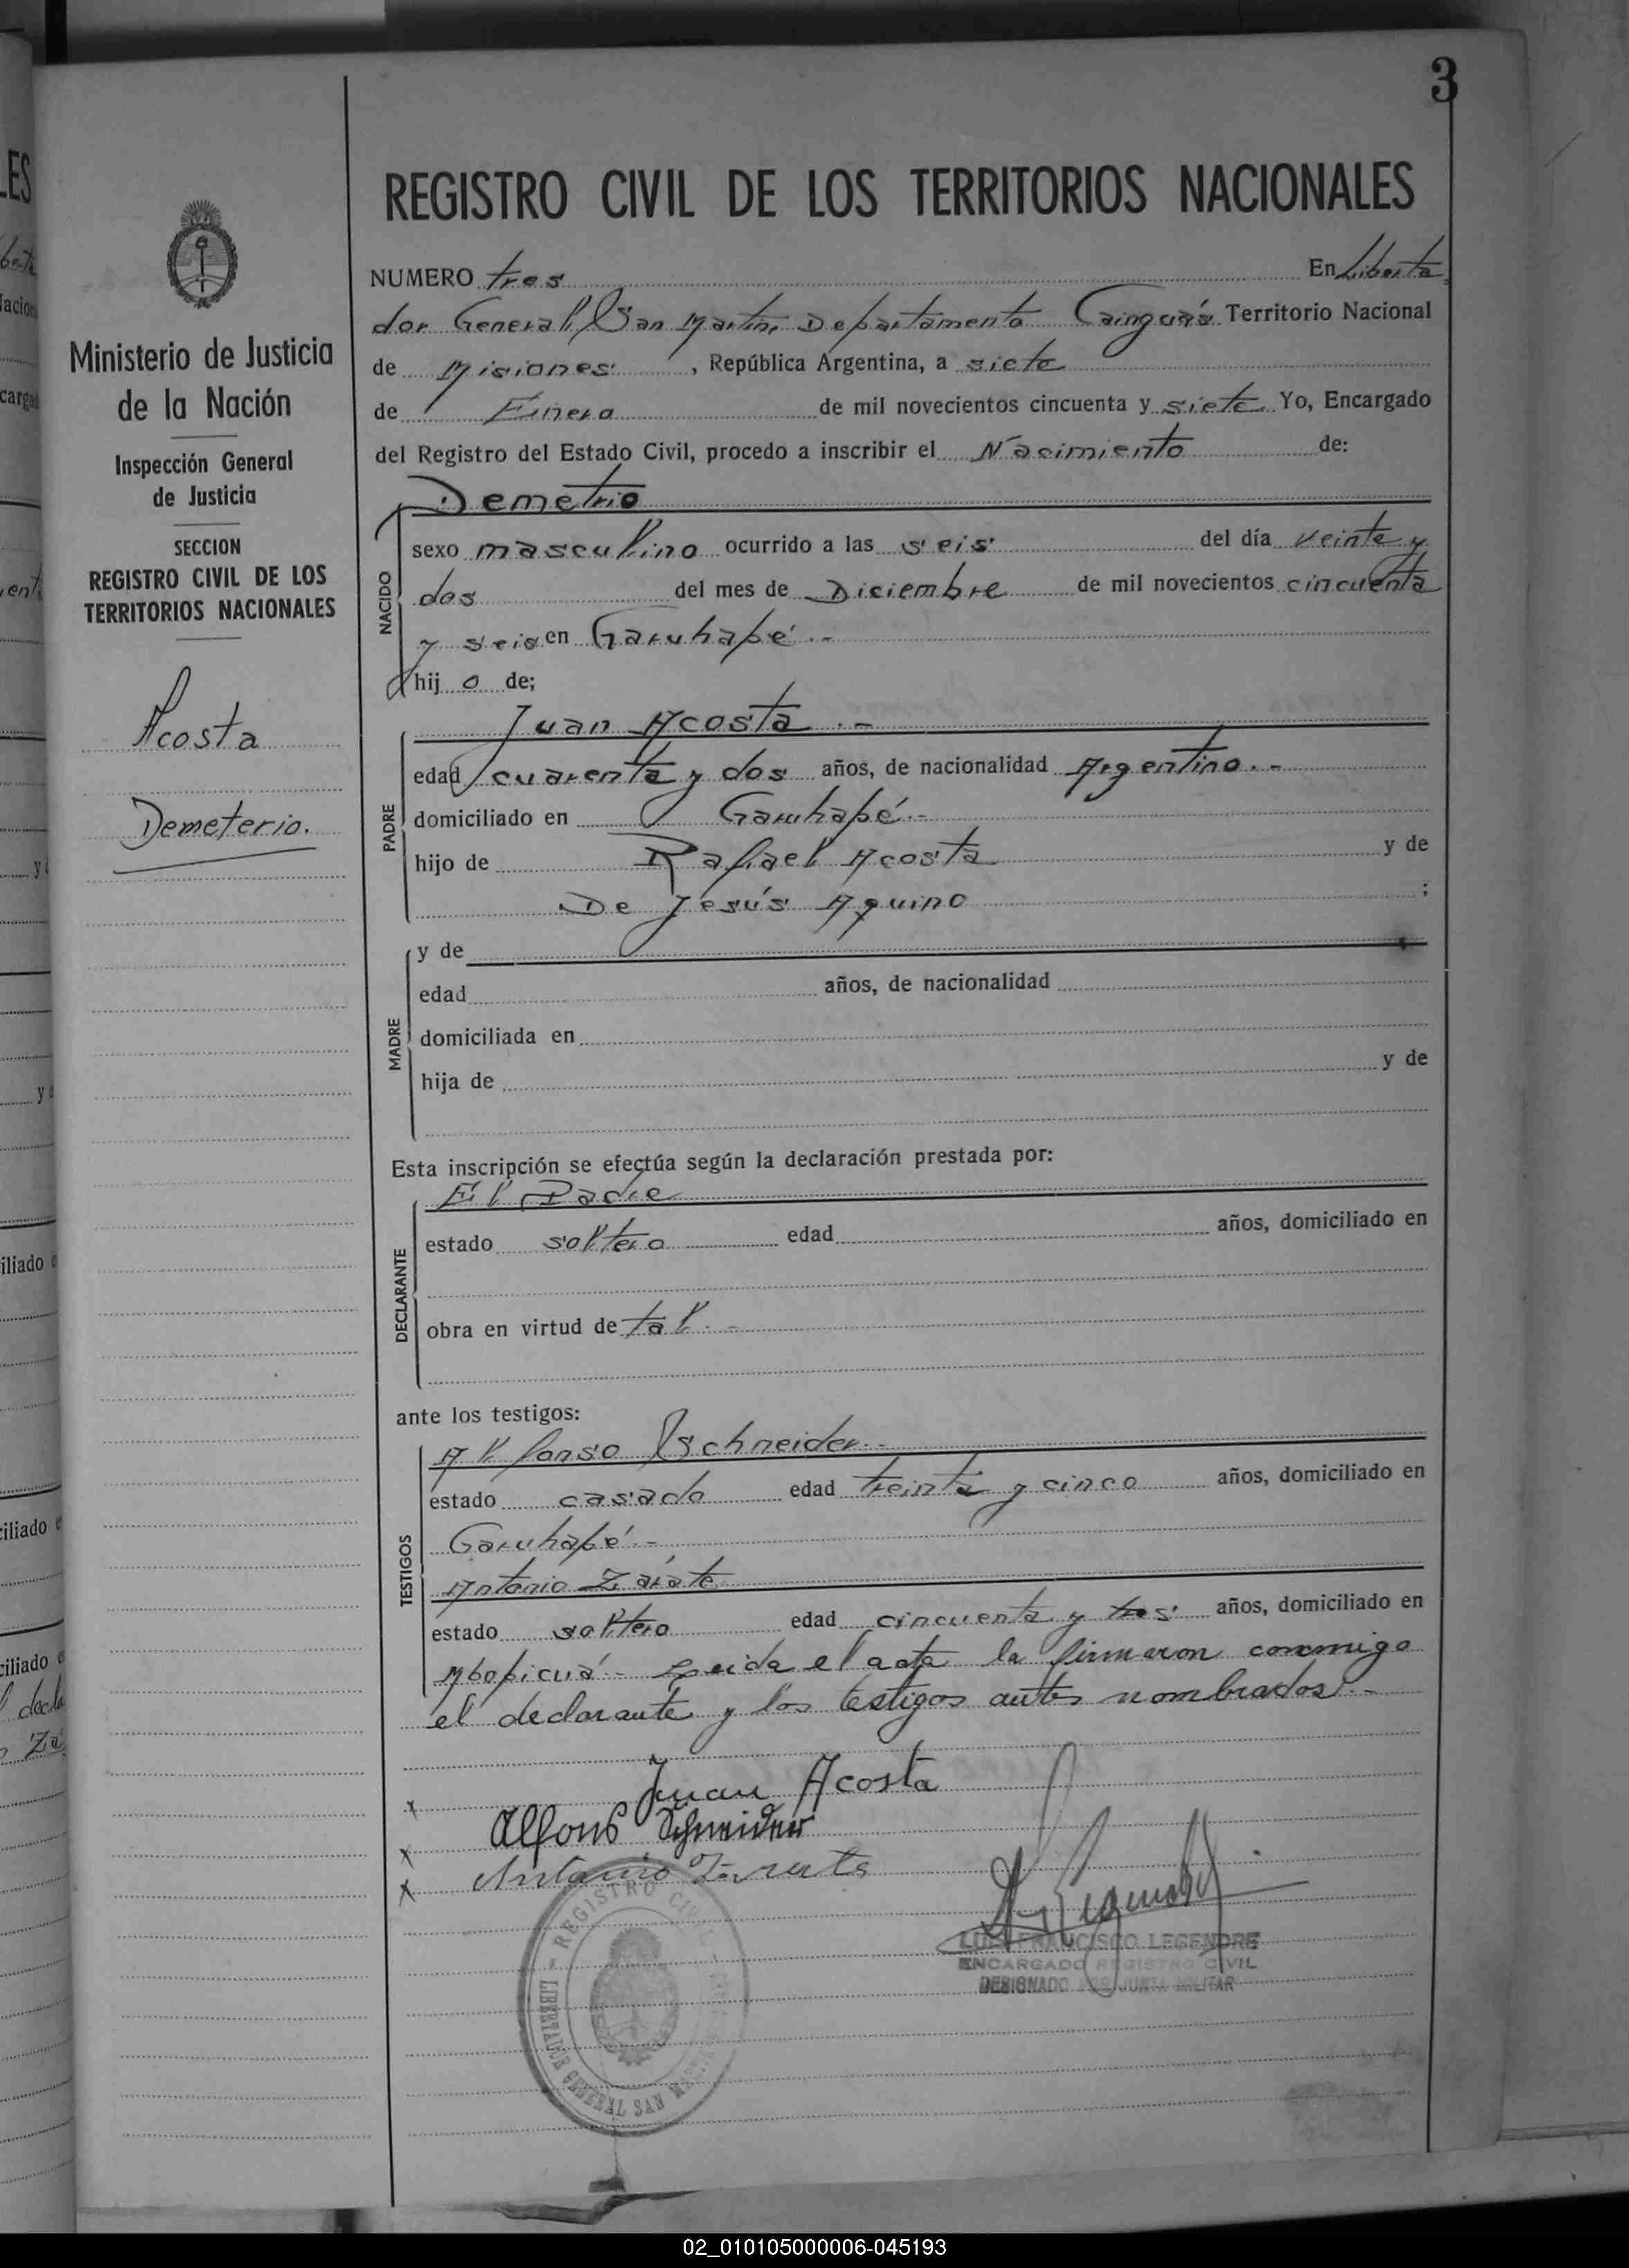 3
REGISTRO CIVIL DE LOS TERRITORIOS NACIONALES
Ministerio de Justicia
de la Nación
Inspección General
de Justicia
SECCION
REGISTRO CIVIL DE LOS
TERRITORIOS NACIONALES
Acosta
Demeterio.
NUMERO tres En Liberta
dor General San Martín, Departamento Cainguás Territorio Nacional
de Misiones, República Argentina, a siete
de Enero de mil novecientos cincuenta y siete Yo, Encargado
del Registro del Estado Civil, procedo a inscribir el Nacimiento de:
Demetrio
NACIDO
sexo masculino ocurrido a las seis del día veinte y
dos del mes de Diciembre de mil novecientos cincuenta
y seis en Garuhapé.-
hij o de;
Juan Acosta.-
PADRE
edad cuarenta y dos años, de nacionalidad Argentino.-
domiciliado en Garuhapé.-
hijo de Rafael Acosta y de
De Jesús Aquino ;
MADRE
y de
edad años, de nacionalidad
domiciliada en
hija de y de
Esta inscripción se efectúa según la declaración prestada por:
El Padre
DECLARANTE
estado soltero edad años, domiciliado en
obra en virtud de tal.-
ante los testigos:
Alfonso Schneider.-
TESTIGOS
estado casado edad treinta y cinco años, domiciliado en
Garuhapé.-
Antonio Zárate
estado soltero edad cincuenta y tres años, domiciliado en
Mbopicuá.- Leida el acta la firmaron conmigo
el declarante y los testigos antes nombrados.-
x Juan Acosta
x Alfons Schneider
x Antonio Zarate
REGISTRO CIVIL
LIBERTADOR GENERAL SAN MARTIN
LUIS FRANCISCO LEGENDRE
ENCARGADO REGISTRO CIVIL
DESIGNADO POR JUNTA MILITAR
02_010105000006-045193